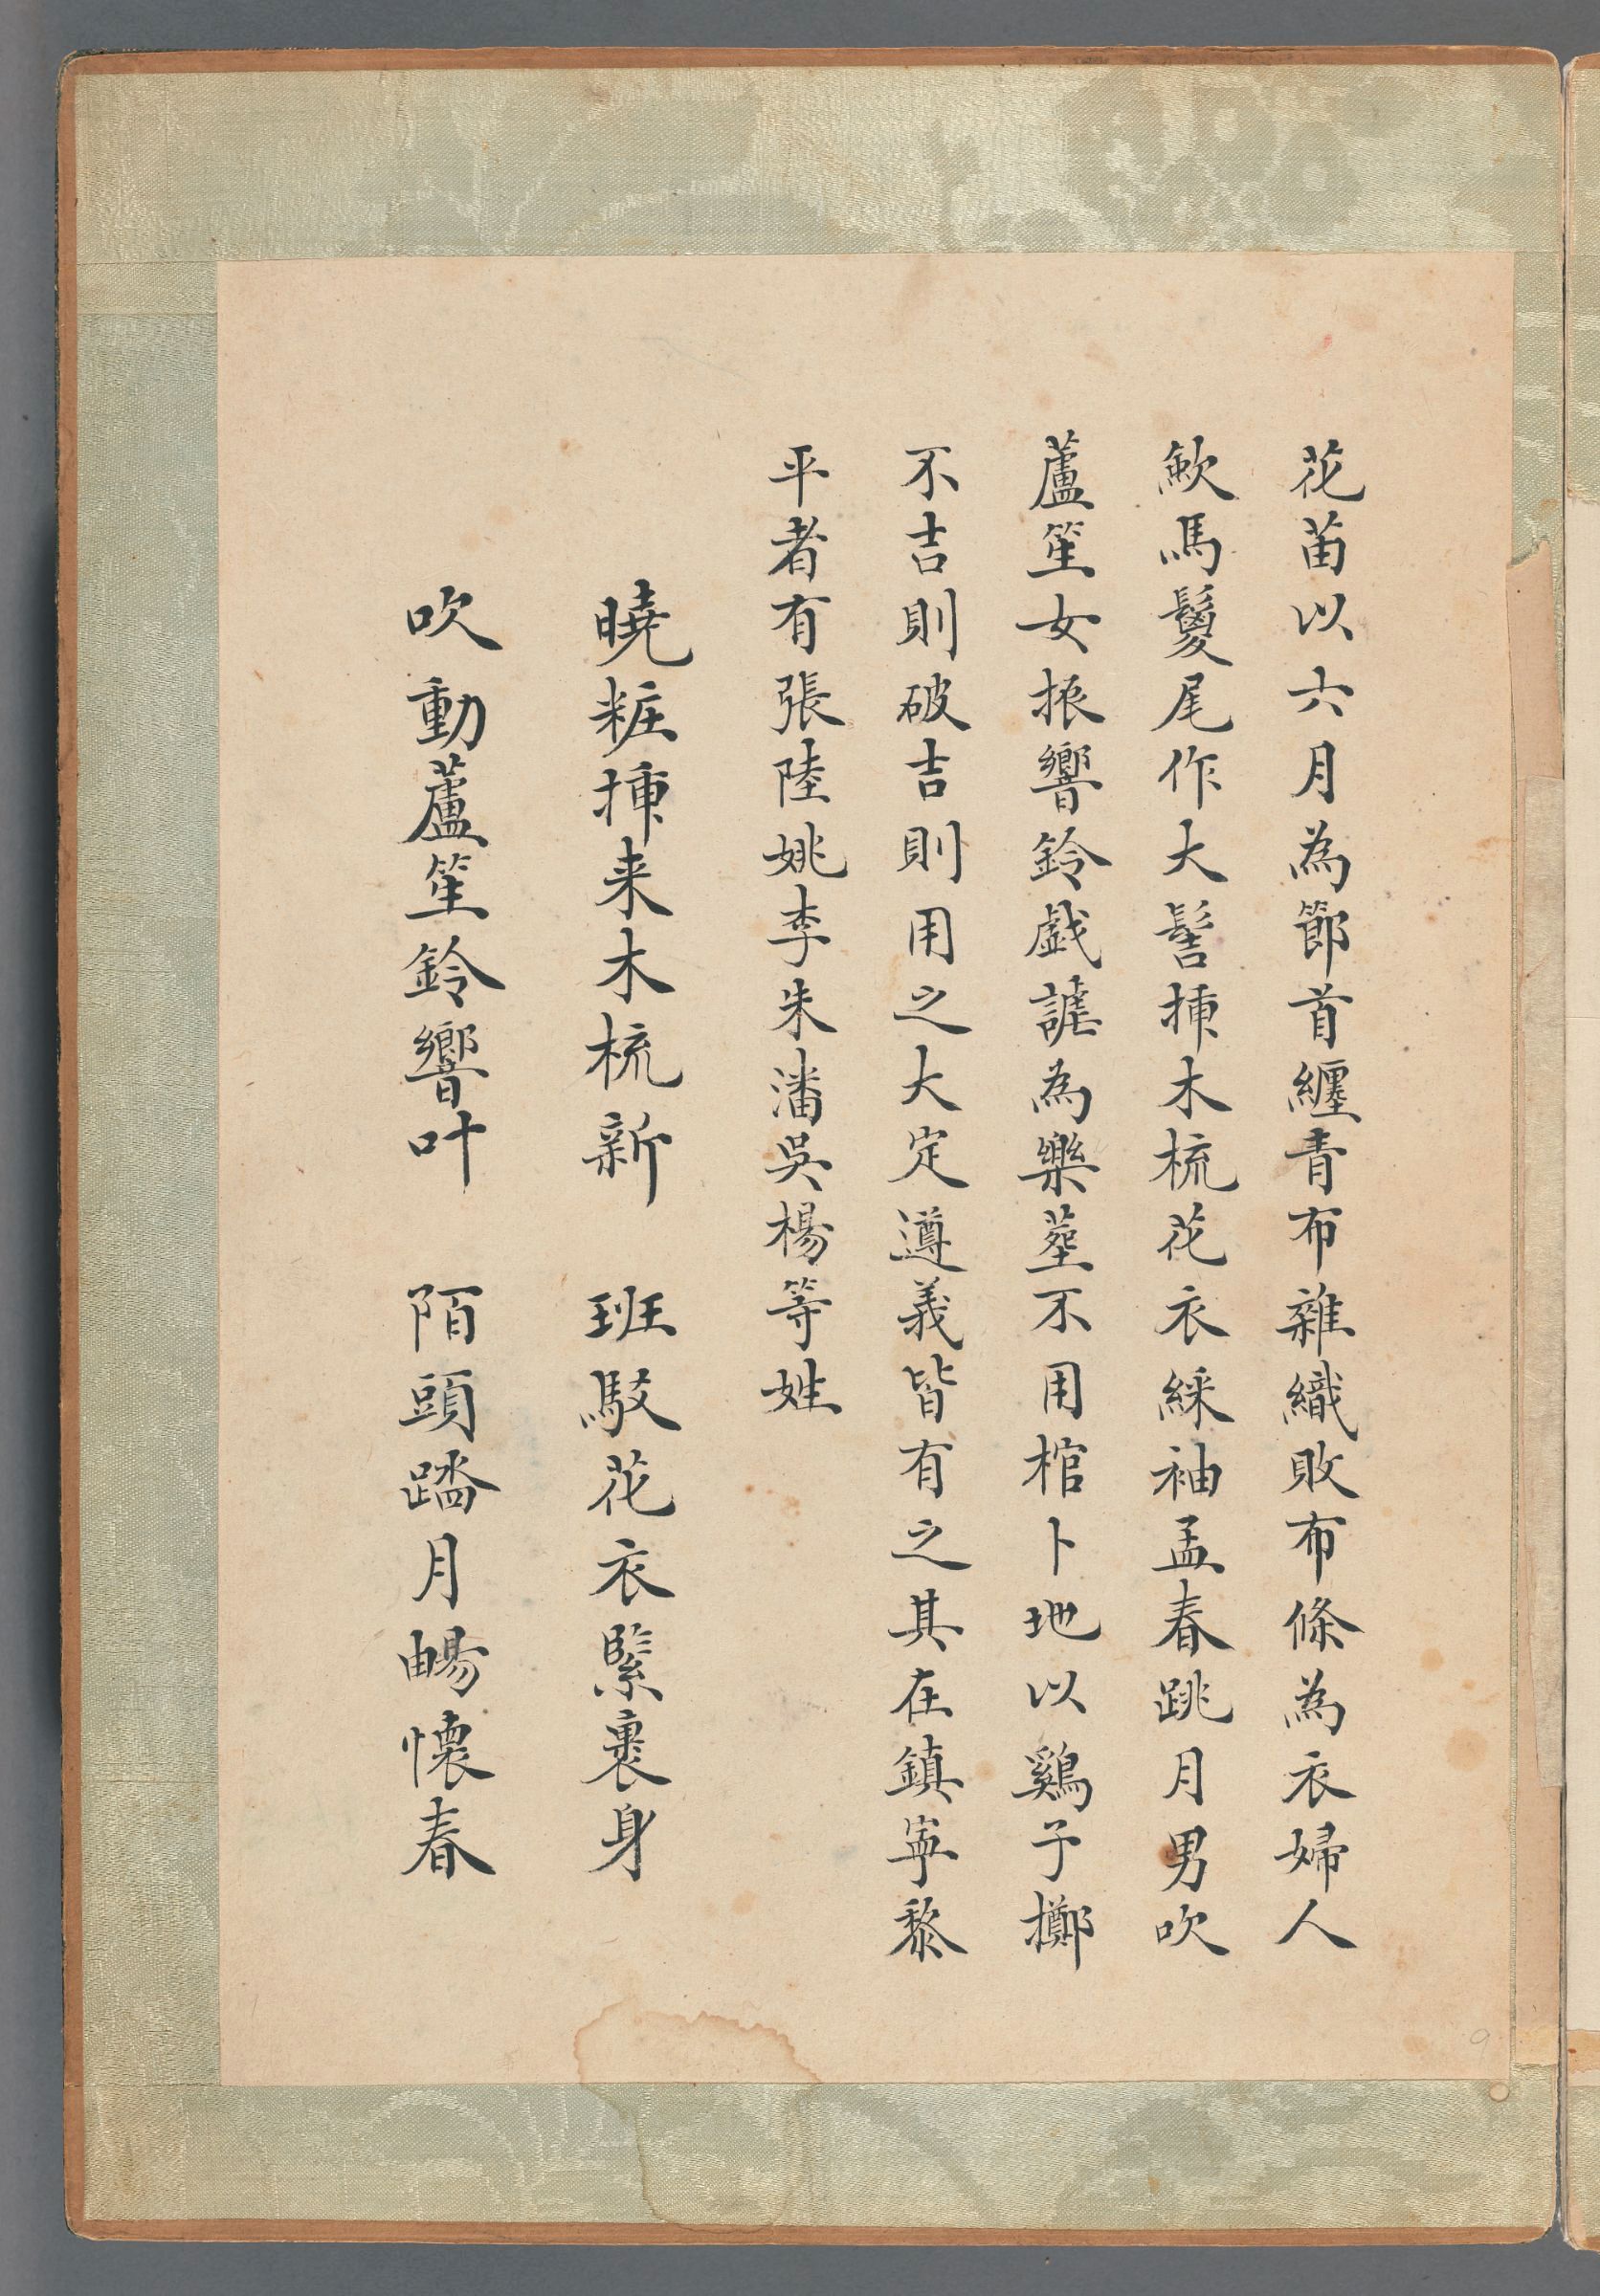 花苗以六月為節首纏青布雜織敗布條為衣婦人
歛馬鬉尾作大髻揷木梳花衣綵袖孟春跳月男吹
蘆笙女振響鈴戲謔為樂塟不用棺卜地以鷄子擲
不吉則破吉則用之大定遵義皆有之其在鎮寧黎
平者有張陸姚李朱潘吳楊等姓
曉粧揷来木梳新　班駁花衣緊裹身
吹動蘆笙鈴響叶　陌頭踏月暢懷春
9